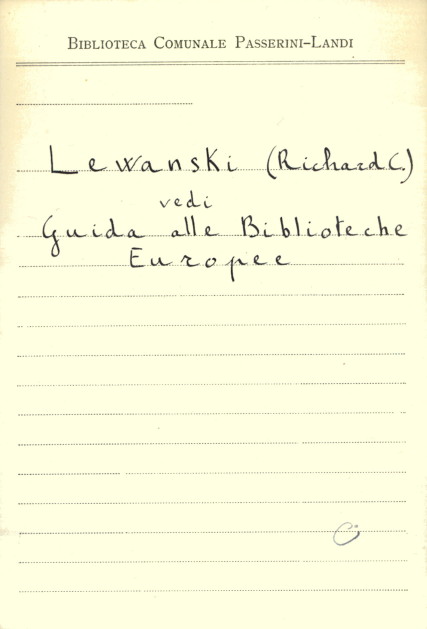 Biblioteca Comunale Passerini-Landi
Lewanski (Richard C.)
vedi
Guida alle Biblioteche
Europee